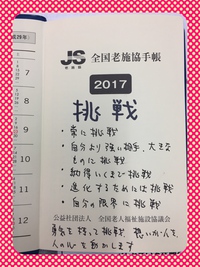 平成29年
7
8
9
10
11
12
JS
全国老施協手帳
2017
挑戦
・常に挑戦
・自分より強い相手、大きな
ものに挑戦
・納得いくまで挑戦
・進化するためには挑戦
・自分の限界に挑戦
公益社団法人 全国老人福祉施設協議会
勇気を持って挑戦 想いが人を、
人の心を動かします